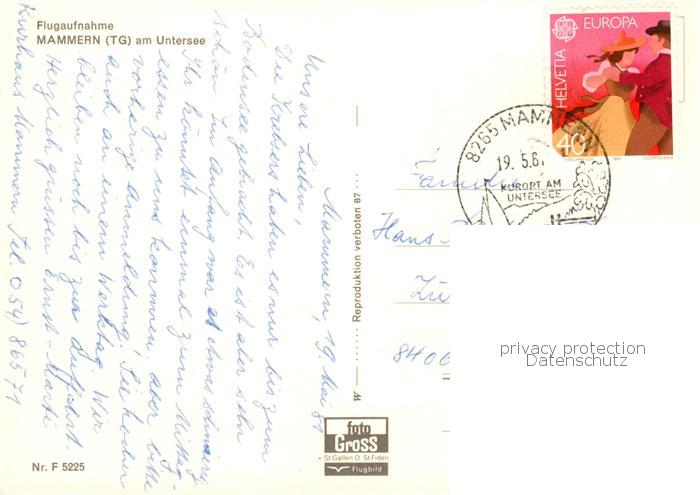 Flugaufnahme
MAMMERN (TG) am Untersee
Mammern, 19. Mai 81
Unsere Lieben,
Die Krebsers haben es nur bis zum
Bodensee gebracht. Es ist aber sehr
schön. Im Anfang war es etwas schwierig.
Ihr könntet einmal zum Mittag-
essen zu uns kommen, aber bitte
vorherige Anmeldung. Sie kochen
auch an einem Werktag. Wir
bleiben noch bis zur Auffahrt.
Herzlich grüssen Ernst + Marti
Kurhaus Mammern Tel. 054) 86571
W — ······ Reproduktion verboten 87 ······ —
foto
Gross
St Gallen O St Fiden
Flugbild
Nr. F 5225
EUROPA
HELVETIA
40
8265 MAMMERN
19. 5.81
KURORT AM
UNTERSEE
Familie
Hans-
8400
privacy protection
Datenschutz